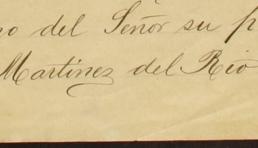 no del Señor su p
Martinez del Rio